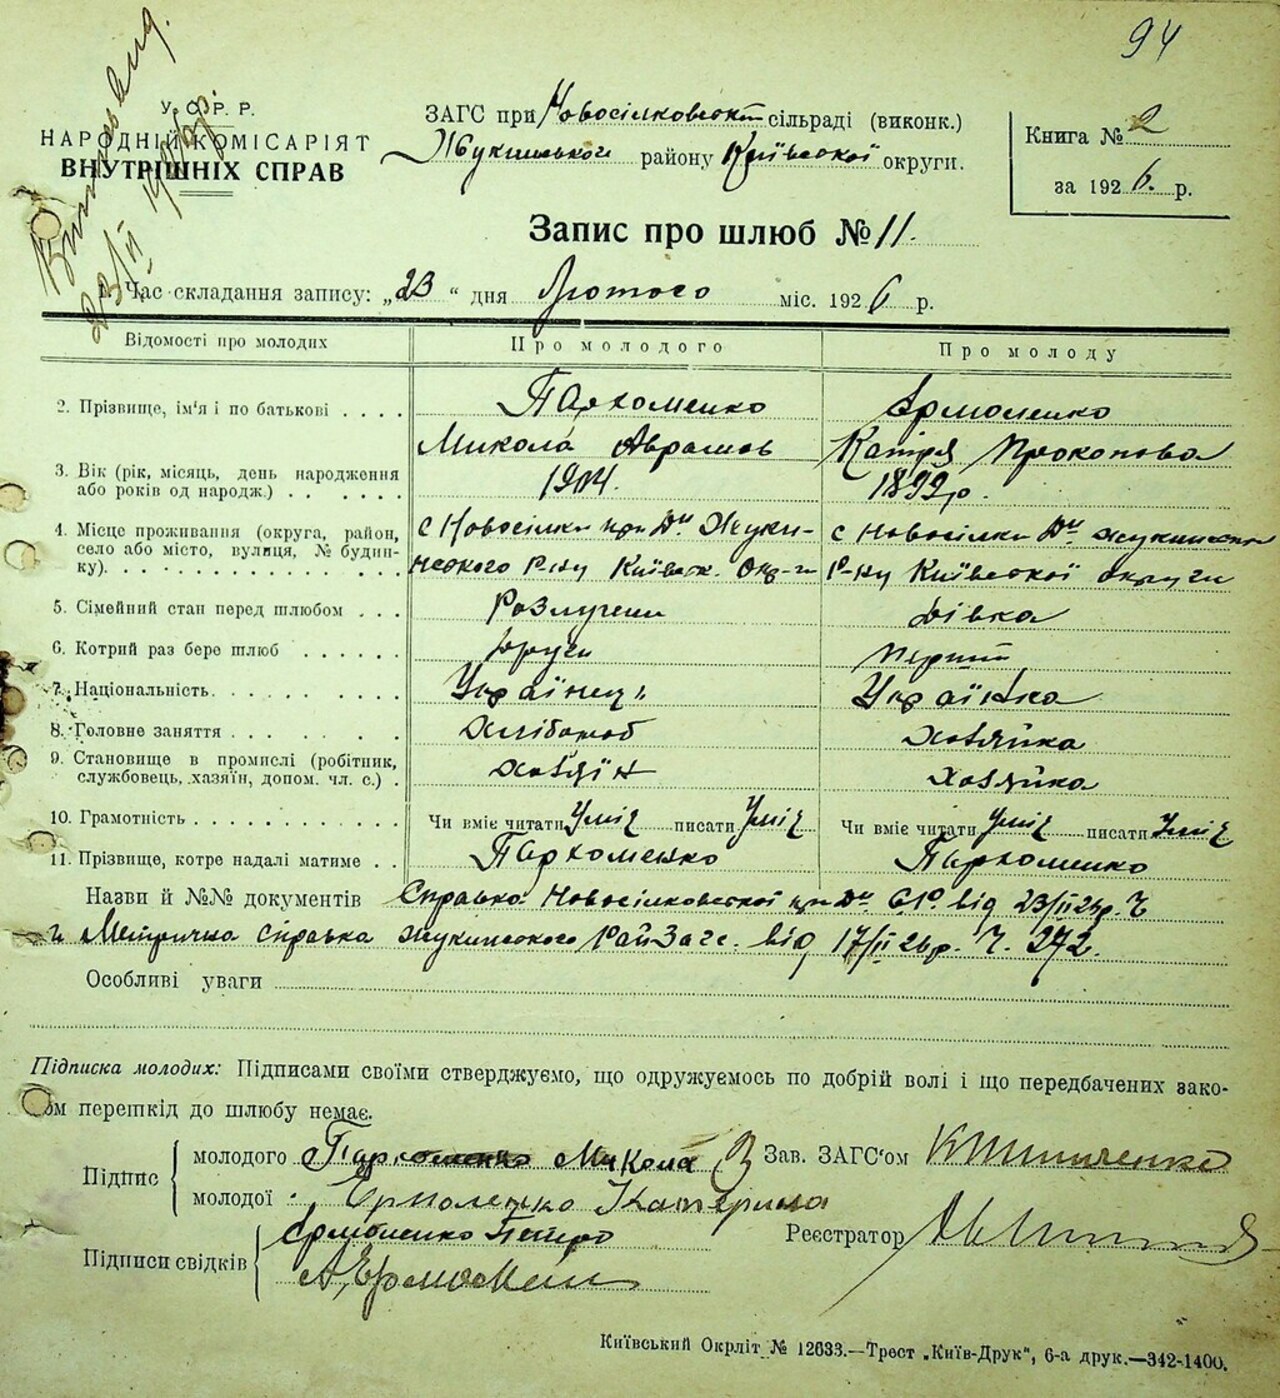 94
У. С. Р. Р.
НАРОДНІЙ КОМІСАРІЯТ
ВНУТРІШНІХ СПРАВ
ЗАГС при Новосілковськ сільраді (виконк.)
Жукинського району Київської округи.
Книга № 2
за 1926. р.
Запис про шлюб № 11.
1. Час складання запису: „23“ дня Лютого міс. 1926 р.
Відомості про молодих
Про молодого
Про молоду
2. Прізвище, ім'я і по батькові . . . .
Пархоменко
Микола Аврамов
Єрмоленко
Катря Прокопова
3. Вік (рік, місяць, день народження
або років од народж.) . . . . . .
1904.
1899р.
4. Місце проживання (округа, район,
село або місто, вулиця, № будин-
ку). . . . . . . . . . . . . . . . . .
с Новосілки при Дн Жуки-
нського Р-ну Київськ. Окр-ги
с Новосілки Дн
Р-ну Київської округи
5. Сімейний стан перед шлюбом . . .
Розлучени
Дівка
6. Котрий раз бере шлюб . . . . . .
други
перший
7. Національність. . . . . . . . . . .
Українець
Українка
8. Головне заняття . . . . . . . . .
Хлібороб
Хозяйка
9. Становище в промислі (робітник,
службовець, хазяїн, допом. чл. с.) .
Хозяїн
Хозяйка
10. Грамотність . . . . . . . . . . . .
Чи вміє читати Уміє писати Уміє
Чи вміє читати Уміє писати Уміє
11. Прізвище, котре надалі матиме . .
Пархоменко
Пархоменко
Назви й №№ документів Справка Новосілковської при Дн С.Р. від 23/II 26р. Ч
и Метрична справка Жукинского РайЗагс. від 17/II 26р. Ч. 272.
Особливі уваги
Підписка молодих: Підписами своїми стверджуємо, що одружуємось по добрій волі і що передбачених зако-
ом перешкід до шлюбу немає.
Підпис
молодого Пархоменко Микола
Зав. ЗАГС'ом
молодої Єрмоленко Катерина
Підписи свідків
Єрмоленко Петро
Реєстратор
Київський Окрліт № 12633.—Трест „Київ-Друк“, 6-а друк.—342-1400.